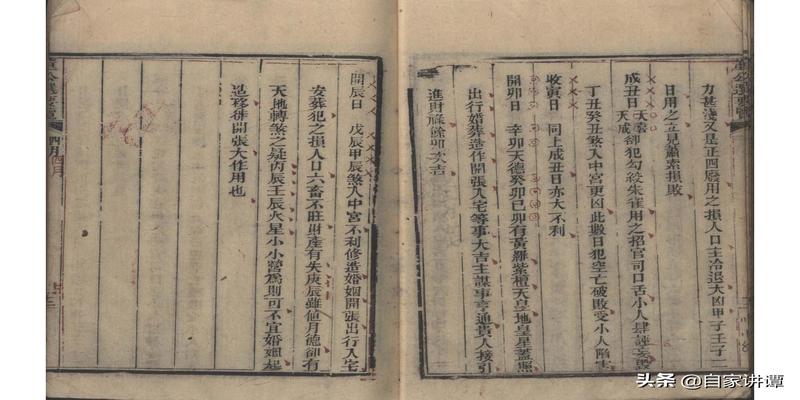 力甚淺又是正四廢用之損人口主冷退大凶甲子壬子二
日用之立見蕭索損敗
成丑日天喜天成卻犯勾絞朱雀用之招官司口舌小人
丁丑癸丑煞入中宮更凶此數日犯空亡破敗受小人陷害
收寅日 同上成丑日亦大不利
開卯日 辛卯天德癸卯已卯有黃羅紫檀天皇地皇星蓋照
出行婚葬造作開張入宅等事大吉主謀事亨通貴人接引
進財祿餘卯次吉
開辰日 戊辰甲辰煞入中宮不利修造婚姻開張出行入宅
安葬犯之損人口六畜不旺財產有失庚辰雖值月德卻有
天地轉煞之疑丙辰壬辰火星小小營為則可不宜婚姻起
造移徙開張大作用也
董公選要覽
四月
头条 @自家讲谭